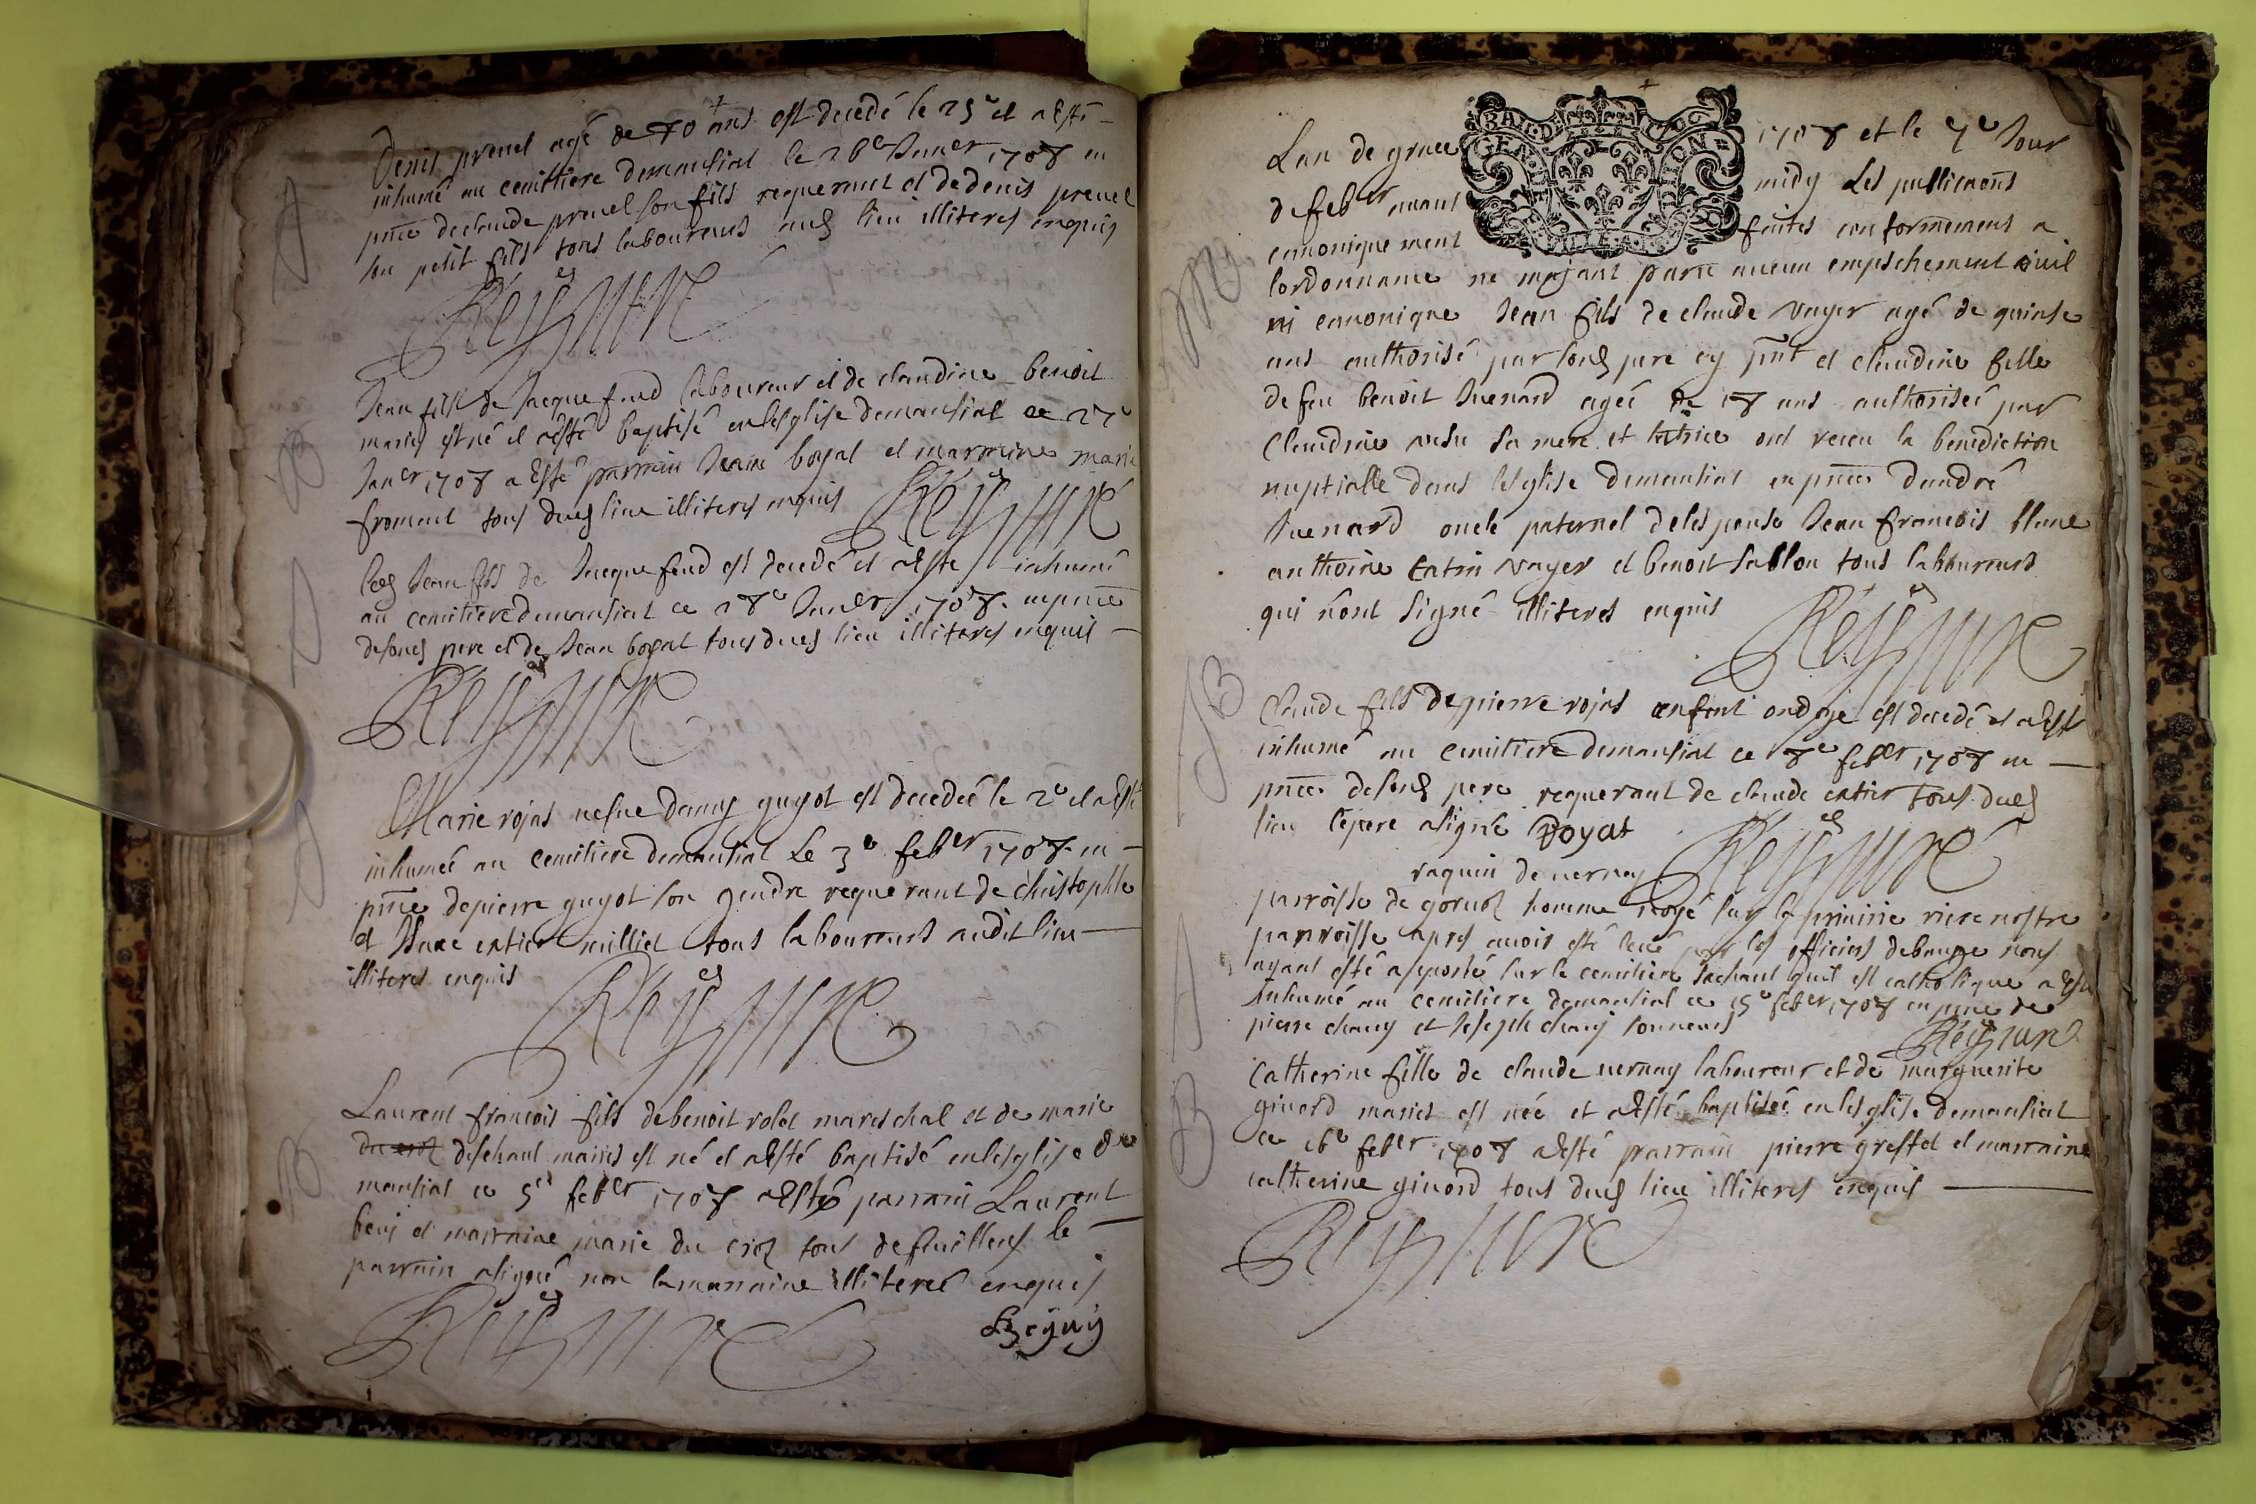 Denis prevel agé de 70 ans est decedé le 25e et a esté
inhumé au cemittiere demantial le 26e Janer 1708 en
pnce de claude prevel son fils requerant et de denis prevel
son petit fils tous laboureurs dud lieu illiteres enquis
Reyssure
Jean fils de Jacque feud laboureur et de claudine benoit
mariés est né et a esté baptisé en lesglise demantial ce 27e
Janer 1708 a esté parrain Jean boyat et marraine marie
froment tous dud lieu illiteres enquis
Reyssure
led Jean fils de Jacque feud est decedé et a esté inhumé
au cemitiere demantial ce 28e Janer 1708 en pnce
de sond pere et de Jean boyat tous dud lieu illiteres enquis
Reyssure
Marie rojas vefue guyot est decedeé le 2e et a esté
inhumeé au cemitiere demantial le 3e feber 1708 en
pnce de pierre guyot son gendre requerant de christophle
et entier milliet tous laboureurs audit lieu
illiteres enquis
Reyssure
Laurent francois fils de benoit rolet mareschal et de marie
deschaut mariés est né et a esté baptisé en lesglise de
mantial ce 5e feber 1708 a esté parrain Laurent
beuj et marraine marie du croz tous de feuillens le
parrain a signé non la marraine illiteree enquis
Reyssure
L beguy
Lan de grace 1708 et le 7e Jour
BAI.D 1706
GENERALITION
de feber avant midy Les publicaons
canoniquement faites conformement a
lordonnance ne mayant paru aucun empeschement ciuil
ni canonique Jean fils de claude vayer agé de quinse
ans authorisé par sond pere cy pnt et claudine fille
de feu benoit Juenard ageé de 18 ans authoriseé par
Claudine sa mere et tutrice ont receu la benediction
nuptialle dans lesglise demantial en pnce dandré
Juenard oncle paternel de lespouse Jean francois blanc
anthoine catin vayer et benoit sablon tous laboureurs
qui nont signé illiteres enquis
Reyssure
Claude fils de pierre rojas enfant ondoje est decedé et a esté
inhumé au cemitiere demantial ce 8e feber 1708 en
pnce de sond pere requerant de claude entier tous dud
lieu le pere a signé Royat
Reyssure
raquin de vernay
parroisse de gorvoz homme noyé sur la priairie riere nostre
parroisse apres auoir esté leué par les officiers debauge nous
ayant esté apporté sur le cemitiere sachant quil est catholique a esté
Inhumé au cemitiere demantial ce 15e feber 1708 en pnce de
pierre chany et Joseph chanj sonneurs
Reyssure
Catherine fille de claude vernay laboureur et de marguerite
givord mariés est neé et a esté baptiseé en lesglise demantial
ce 16e feber 1708 a esté parrain pierre greffet et marraine
catherine givord tous dud lieu illiteres enquis
Reyssure